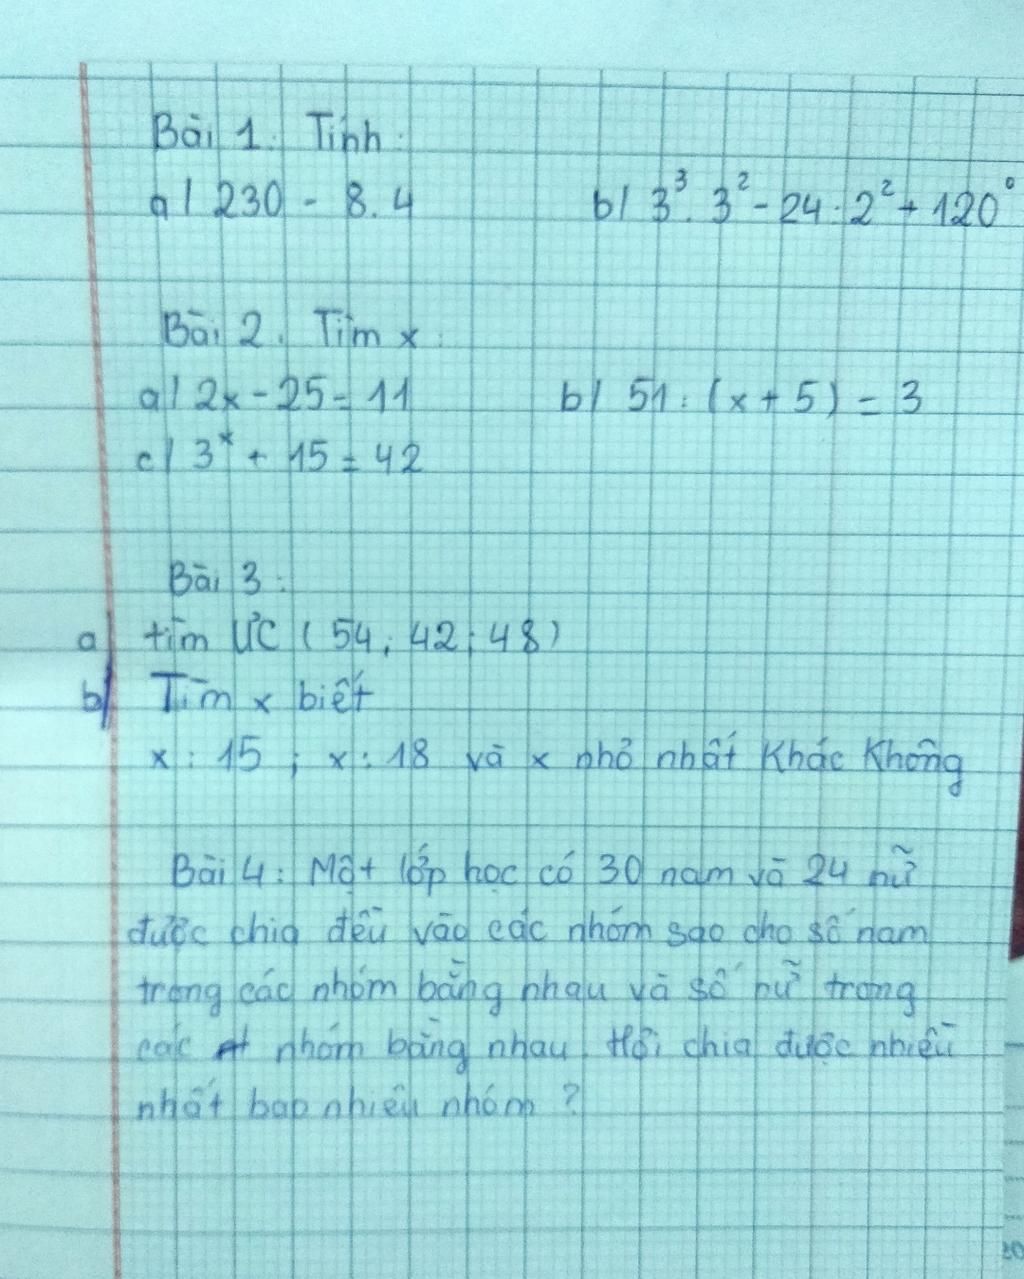 Bài 1: Tính:
a/ 230 - 8.4 b/ 3³. 3² - 24 : 2² + 120⁰
Bài 2. Tìm x:
a/ 2x - 25 = 11 b/ 51 : (x + 5) = 3
c/ 3ˣ + 15 = 42
Bài 3:
a/ tìm ƯC (54; 42; 48)
b/ Tìm x biết
x : 15 ; x : 18 và x nhỏ nhất Khác Không
Bài 4: Một lớp học có 30 nam và 24 nữ
được chia đều vào các nhóm sao cho số nam
trong các nhóm bằng nhau và số nữ trong
các nhóm bằng nhau. Hỏi chia được nhiều
nhất bao nhiêu nhóm ?